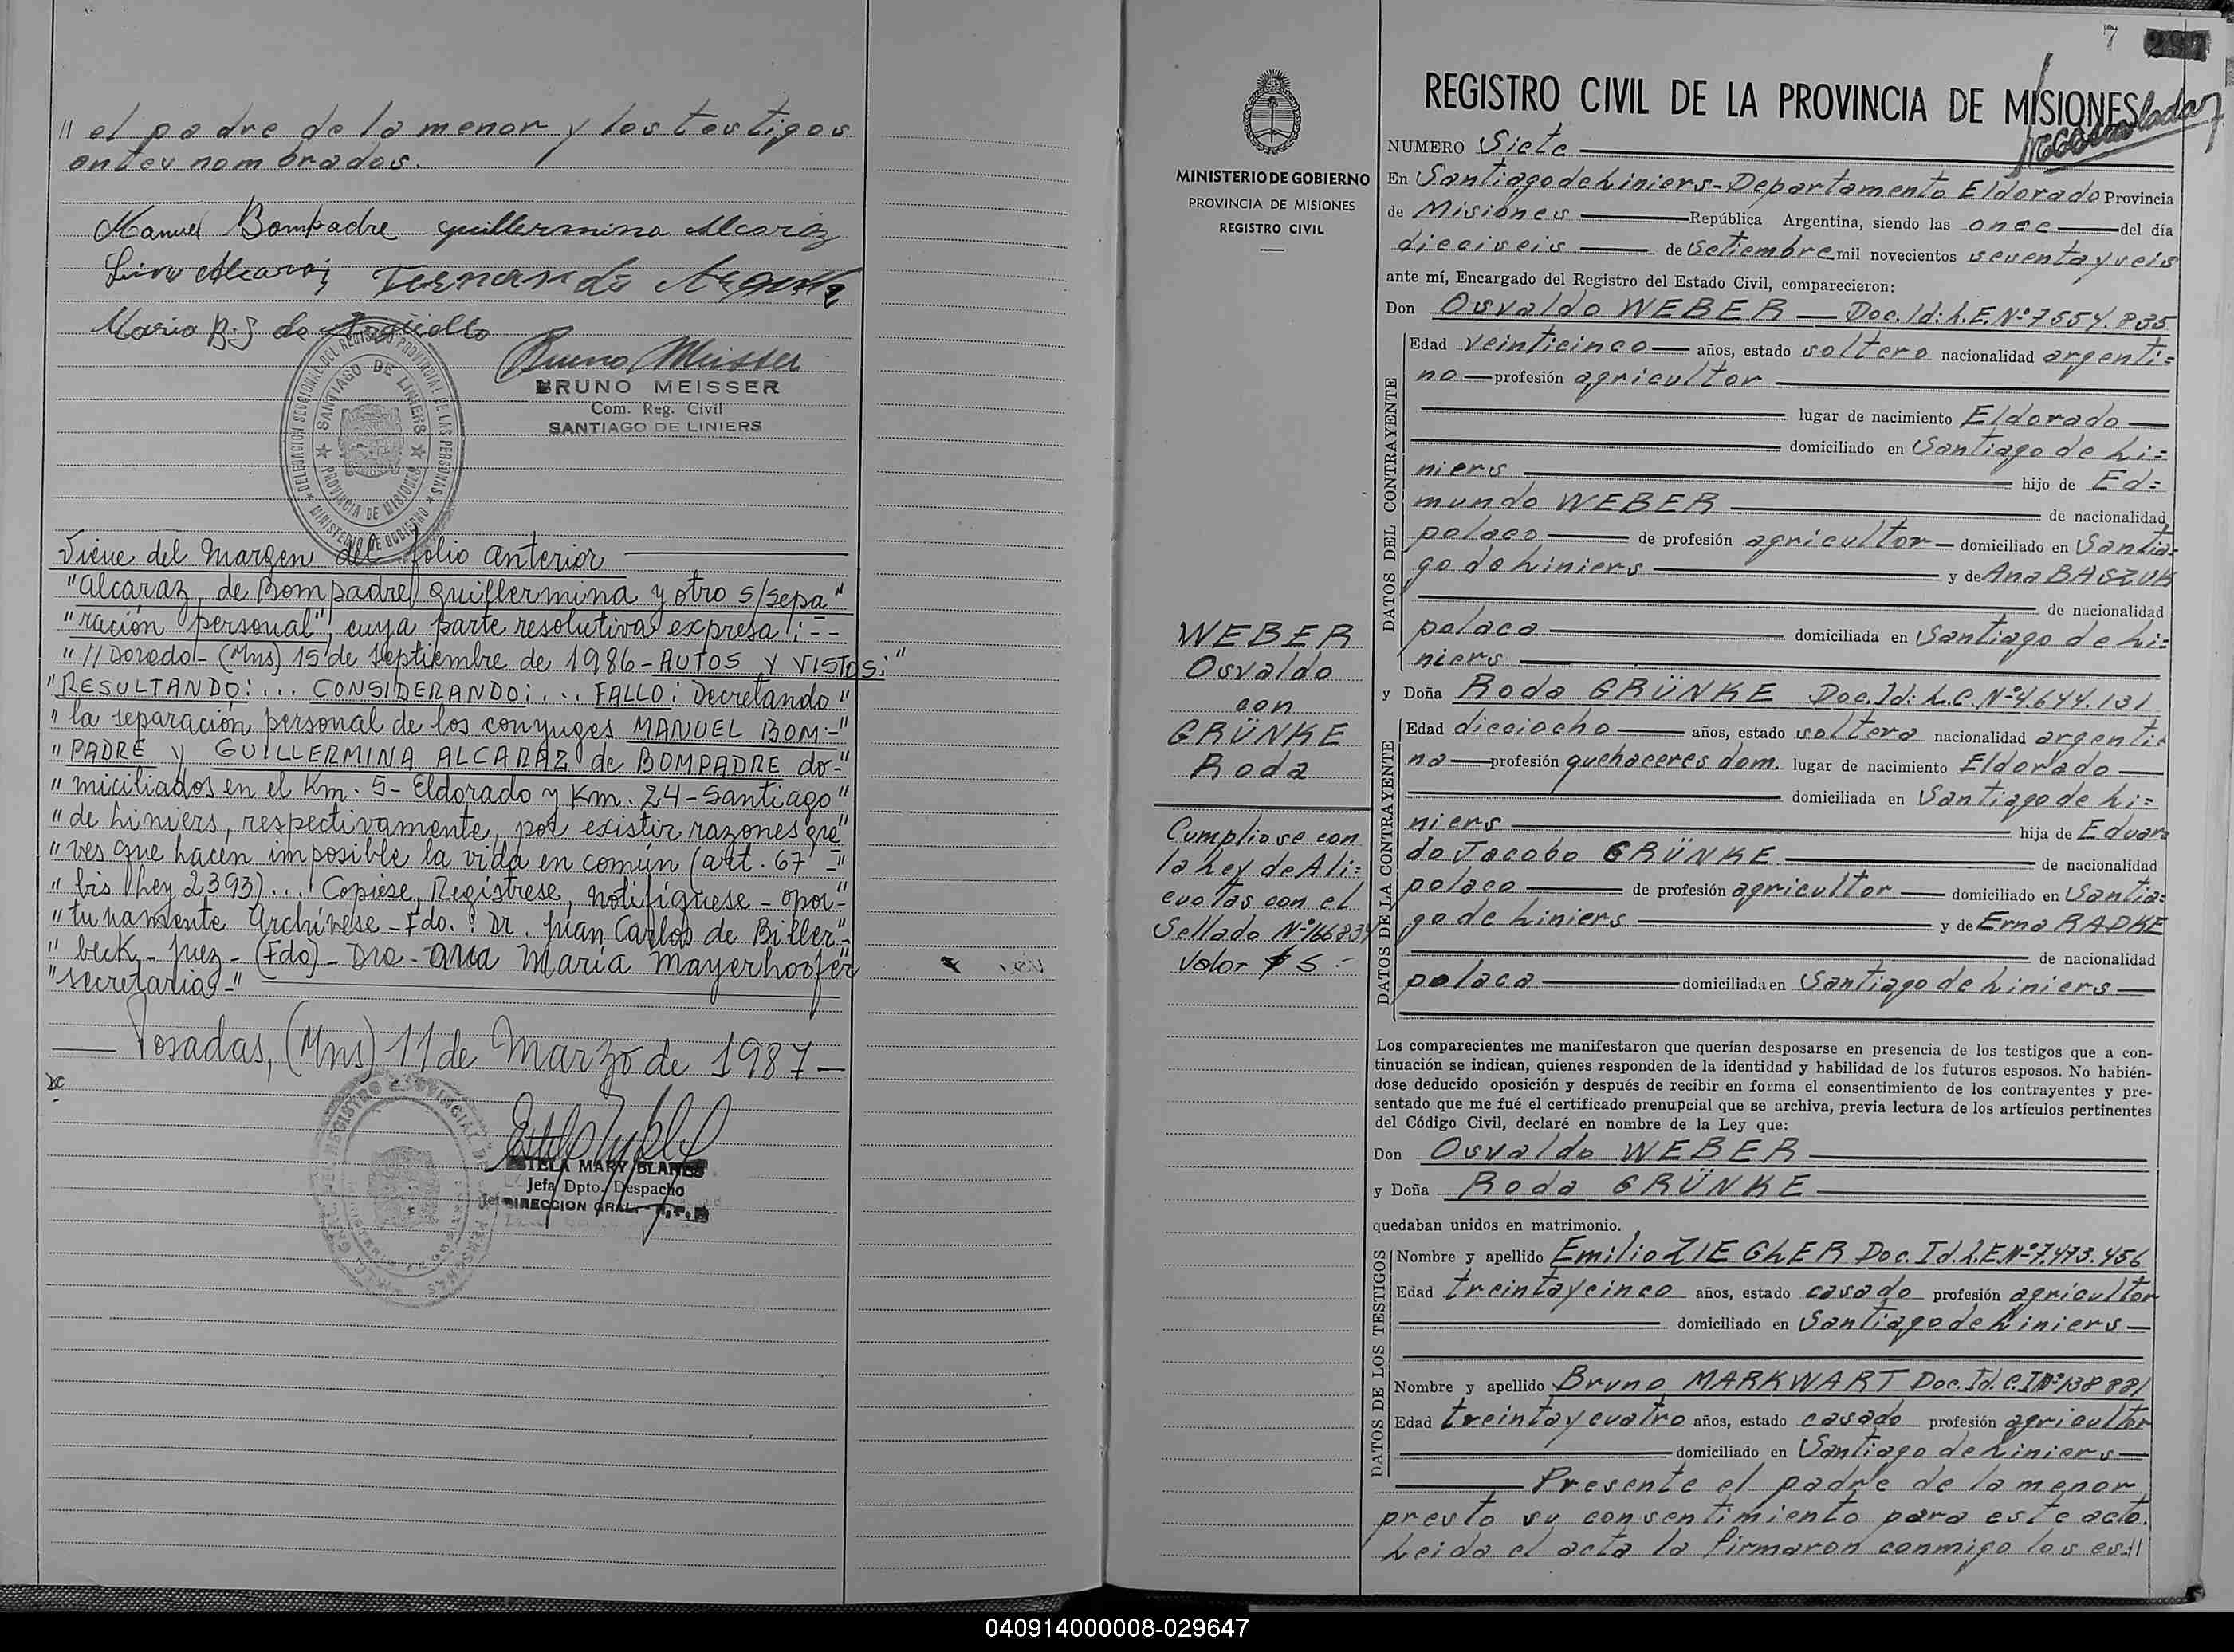 // el padre de la menor y los testigos
antes nombrados.
Manuel Bompadre Guillermina Alcaraz
Fernando
Maria B. J de
DELEGACION SECCIONAL DEL REGISTRO PROVINCIAL DE LAS PERSONAS
SANTIAGO DE LINIERS
PROVINCIA DE MISIONES
MINISTERIO DE GOBIERNO
Bruno Meisser
BRUNO MEISSER
Com. Reg. Civil
SANTIAGO DE LINIERS
Viene del Margen del folio anterior
"Alcaraz de Bompadre Guillermina y otro s/sepa"
"ración personal", cuya parte resolutiva expresa: --
"//Dorado- (Mns) 15 de septiembre de 1986 - AUTOS Y VISTOS:"
"RESULTANDO: ... CONSIDERANDO: ... FALLO: Decretando"
"la separación personal de los conyuges MANUEL BOM-"
"PADRE y GUILLERMINA ALCARAZ de BOMPADRE do-"
"miciliados en el Km. 5- Eldorado y Km. 24- Santiago"
"de Liniers, respectivamente, por existir razones gra"
"ves que hacen imposible la vida en común (art. 67 -"
"bis Ley 2393)... Copiese, Registrese, notifíquese - opor-"
"tunamente Archívese - Fdo.: Dr. Juan Carlos de Biller-"
"beck - Juez - (Fdo) - Dra. Ana María Mayerhoofer
"secretaria-"
Posadas, (Mns) 11 de Marzo de 1987-
ESTELA MARY BLANES
Jefa Dpto. Despacho
DIRECCION GRAL.
7
REGISTRO CIVIL DE LA PROVINCIA DE MISIONES
MINISTERIO DE GOBIERNO
PROVINCIA DE MISIONES
REGISTRO CIVIL
NUMERO Siete
En Santiago de Liniers - Departamento Eldorado Provincia
de Misiones República Argentina, siendo las once del día
dieciseis de Setiembre mil novecientos setenta y seis
ante mí, Encargado del Registro del Estado Civil, comparecieron:
Don Osvaldo WEBER - Doc. Id: L.E. Nº 7554.835
DATOS DEL CONTRAYENTE
Edad veinticinco años, estado soltero nacionalidad argenti=
no profesión agricultor
lugar de nacimiento Eldorado
domiciliado en Santiago de Li=
niers hijo de Ed=
mundo WEBER de nacionalidad
polaco de profesión agricultor domiciliado en Santia=
go de Liniers y de Ana BASZUK
de nacionalidad
polaca domiciliada en Santiago de Li=
niers
y Doña Roda GRÜNKE Doc. Id: L.C. Nº 4.644.131
DATOS DE LA CONTRAYENTE
Edad dieciocho años, estado soltera nacionalidad argenti=
na profesión quehaceres dom. lugar de nacimiento Eldorado
domiciliada en Santiago de Li=
niers hija de Eduar=
do Jacobo GRÜNKE de nacionalidad
polaco de profesión agricultor domiciliado en Santia=
go de Liniers y de Erna RADKE
de nacionalidad
polaca domiciliada en Santiago de Liniers
WEBER
Osvaldo
con
GRÜNKE
Roda
Cumpliose con
la Ley de Ali=
cuotas con el
Sellado Nº 166834
Valor $ 5.-
Los comparecientes me manifestaron que querían desposarse en presencia de los testigos que a con-
tinuación se indican, quienes responden de la identidad y habilidad de los futuros esposos. No habién-
dose deducido oposición y después de recibir en forma el consentimiento de los contrayentes y pre-
sentado que me fué el certificado prenupcial que se archiva, previa lectura de los artículos pertinentes
del Código Civil, declaré en nombre de la Ley que:
Don Osvaldo WEBER
y Doña Roda GRÜNKE
quedaban unidos en matrimonio.
DATOS DE LOS TESTIGOS
Nombre y apellido Emilio ZIEGLER Doc. Id. L.E. Nº 7.473.456
Edad treinta y cinco años, estado casado profesión agricultor
domiciliado en Santiago de Liniers
Nombre y apellido Bruno MARKWART Doc. Id. C.I Nº 138881
Edad treinta y cuatro años, estado casado profesión agricultor
domiciliado en Santiago de Liniers
Presente el padre de la menor
presto su consentimiento para este acto.
Leida el acta la firmaron conmigo los es//
040914000008-029647